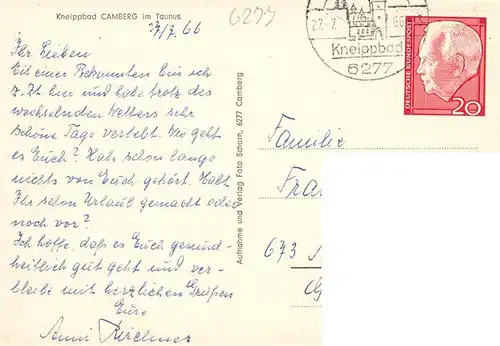 Kneippbad CAMBERG im Taunus
27/7. 66
6277
Ihr Lieben
Mit einer Bekannten bin ich
z. Zt. hier und habe trotz des
wechselnden Wetters sehr
schöne Tage verlebt. Wie geht
es Euch? Habe schon lange
nichts von Euch gehört. Habt
Ihr schon Urlaub gemacht oder
noch vor?
Ich hoffe, daß es Euch gesund-
heitlich gut geht und ver-
bleibe mit herzlichen Grüßen
Eure
Anni Kirchner
Aufnahme und Verlag Foto Schorn, 6277 Camberg
27.-7.
66
Kneippbad
6277
DEUTSCHE BUNDESPOST
20
Familie
Fra
673